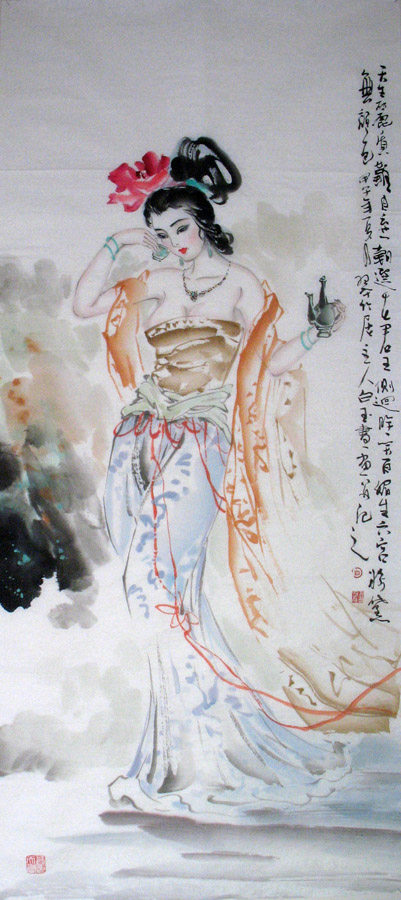 天生丽质難自棄一朝選在君王側迴眸一笑百媚生六宫粉黛
無顏色 甲子年夏月 竹居主人白玉書畫并記之